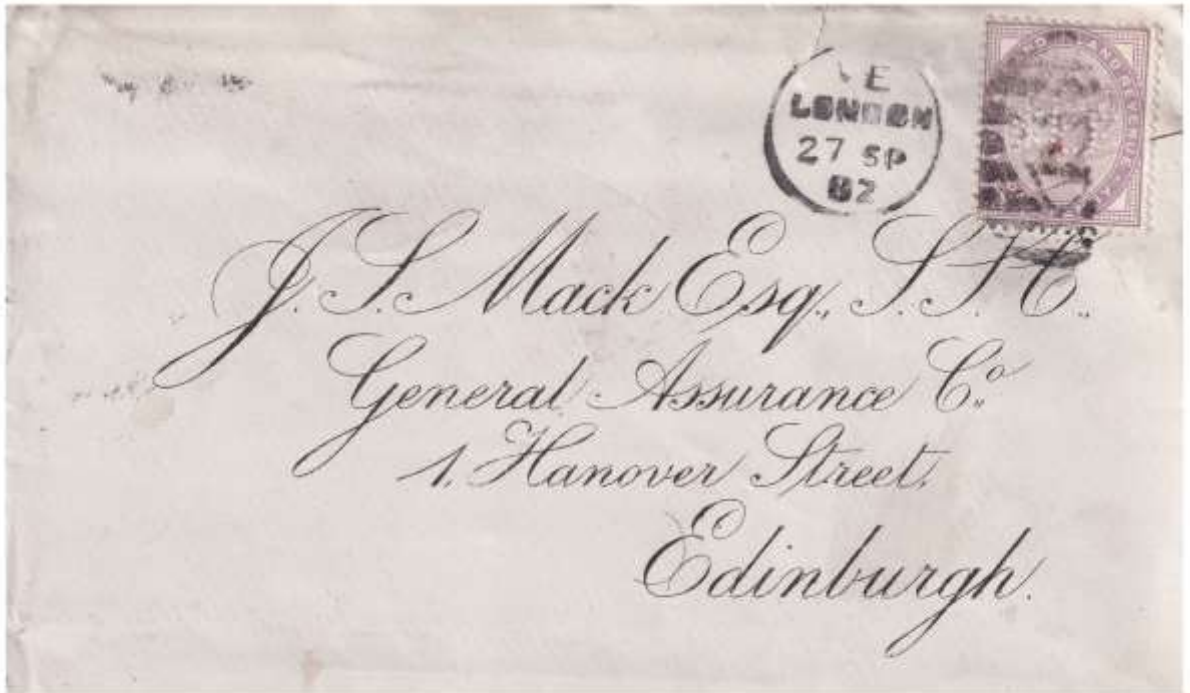 E
LONDON
27 SP
82
REVENUE
J. S. Mack Esq., S.S.C.,
General Assurance Co.
1. Hanover Street,
Edinburgh.